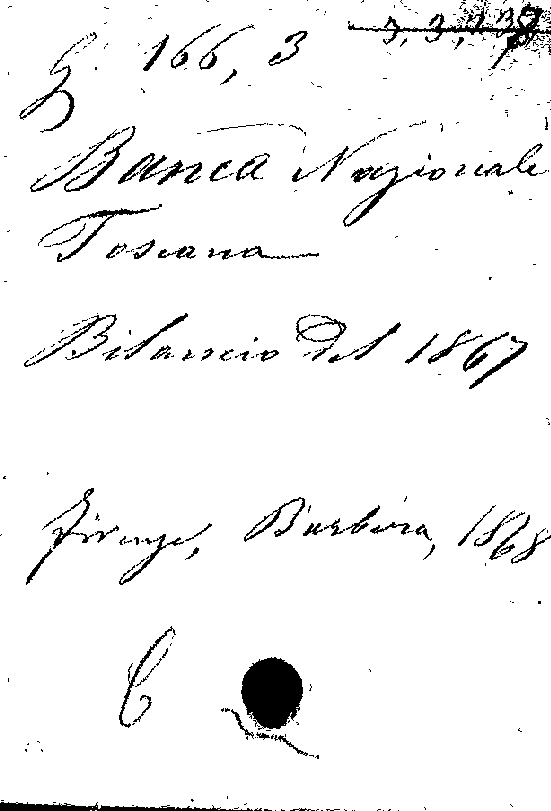 G. 166, 3
Banca Nazionale
Toscana
Bilancio del 1867
Firenze, Barbèra, 1868
C